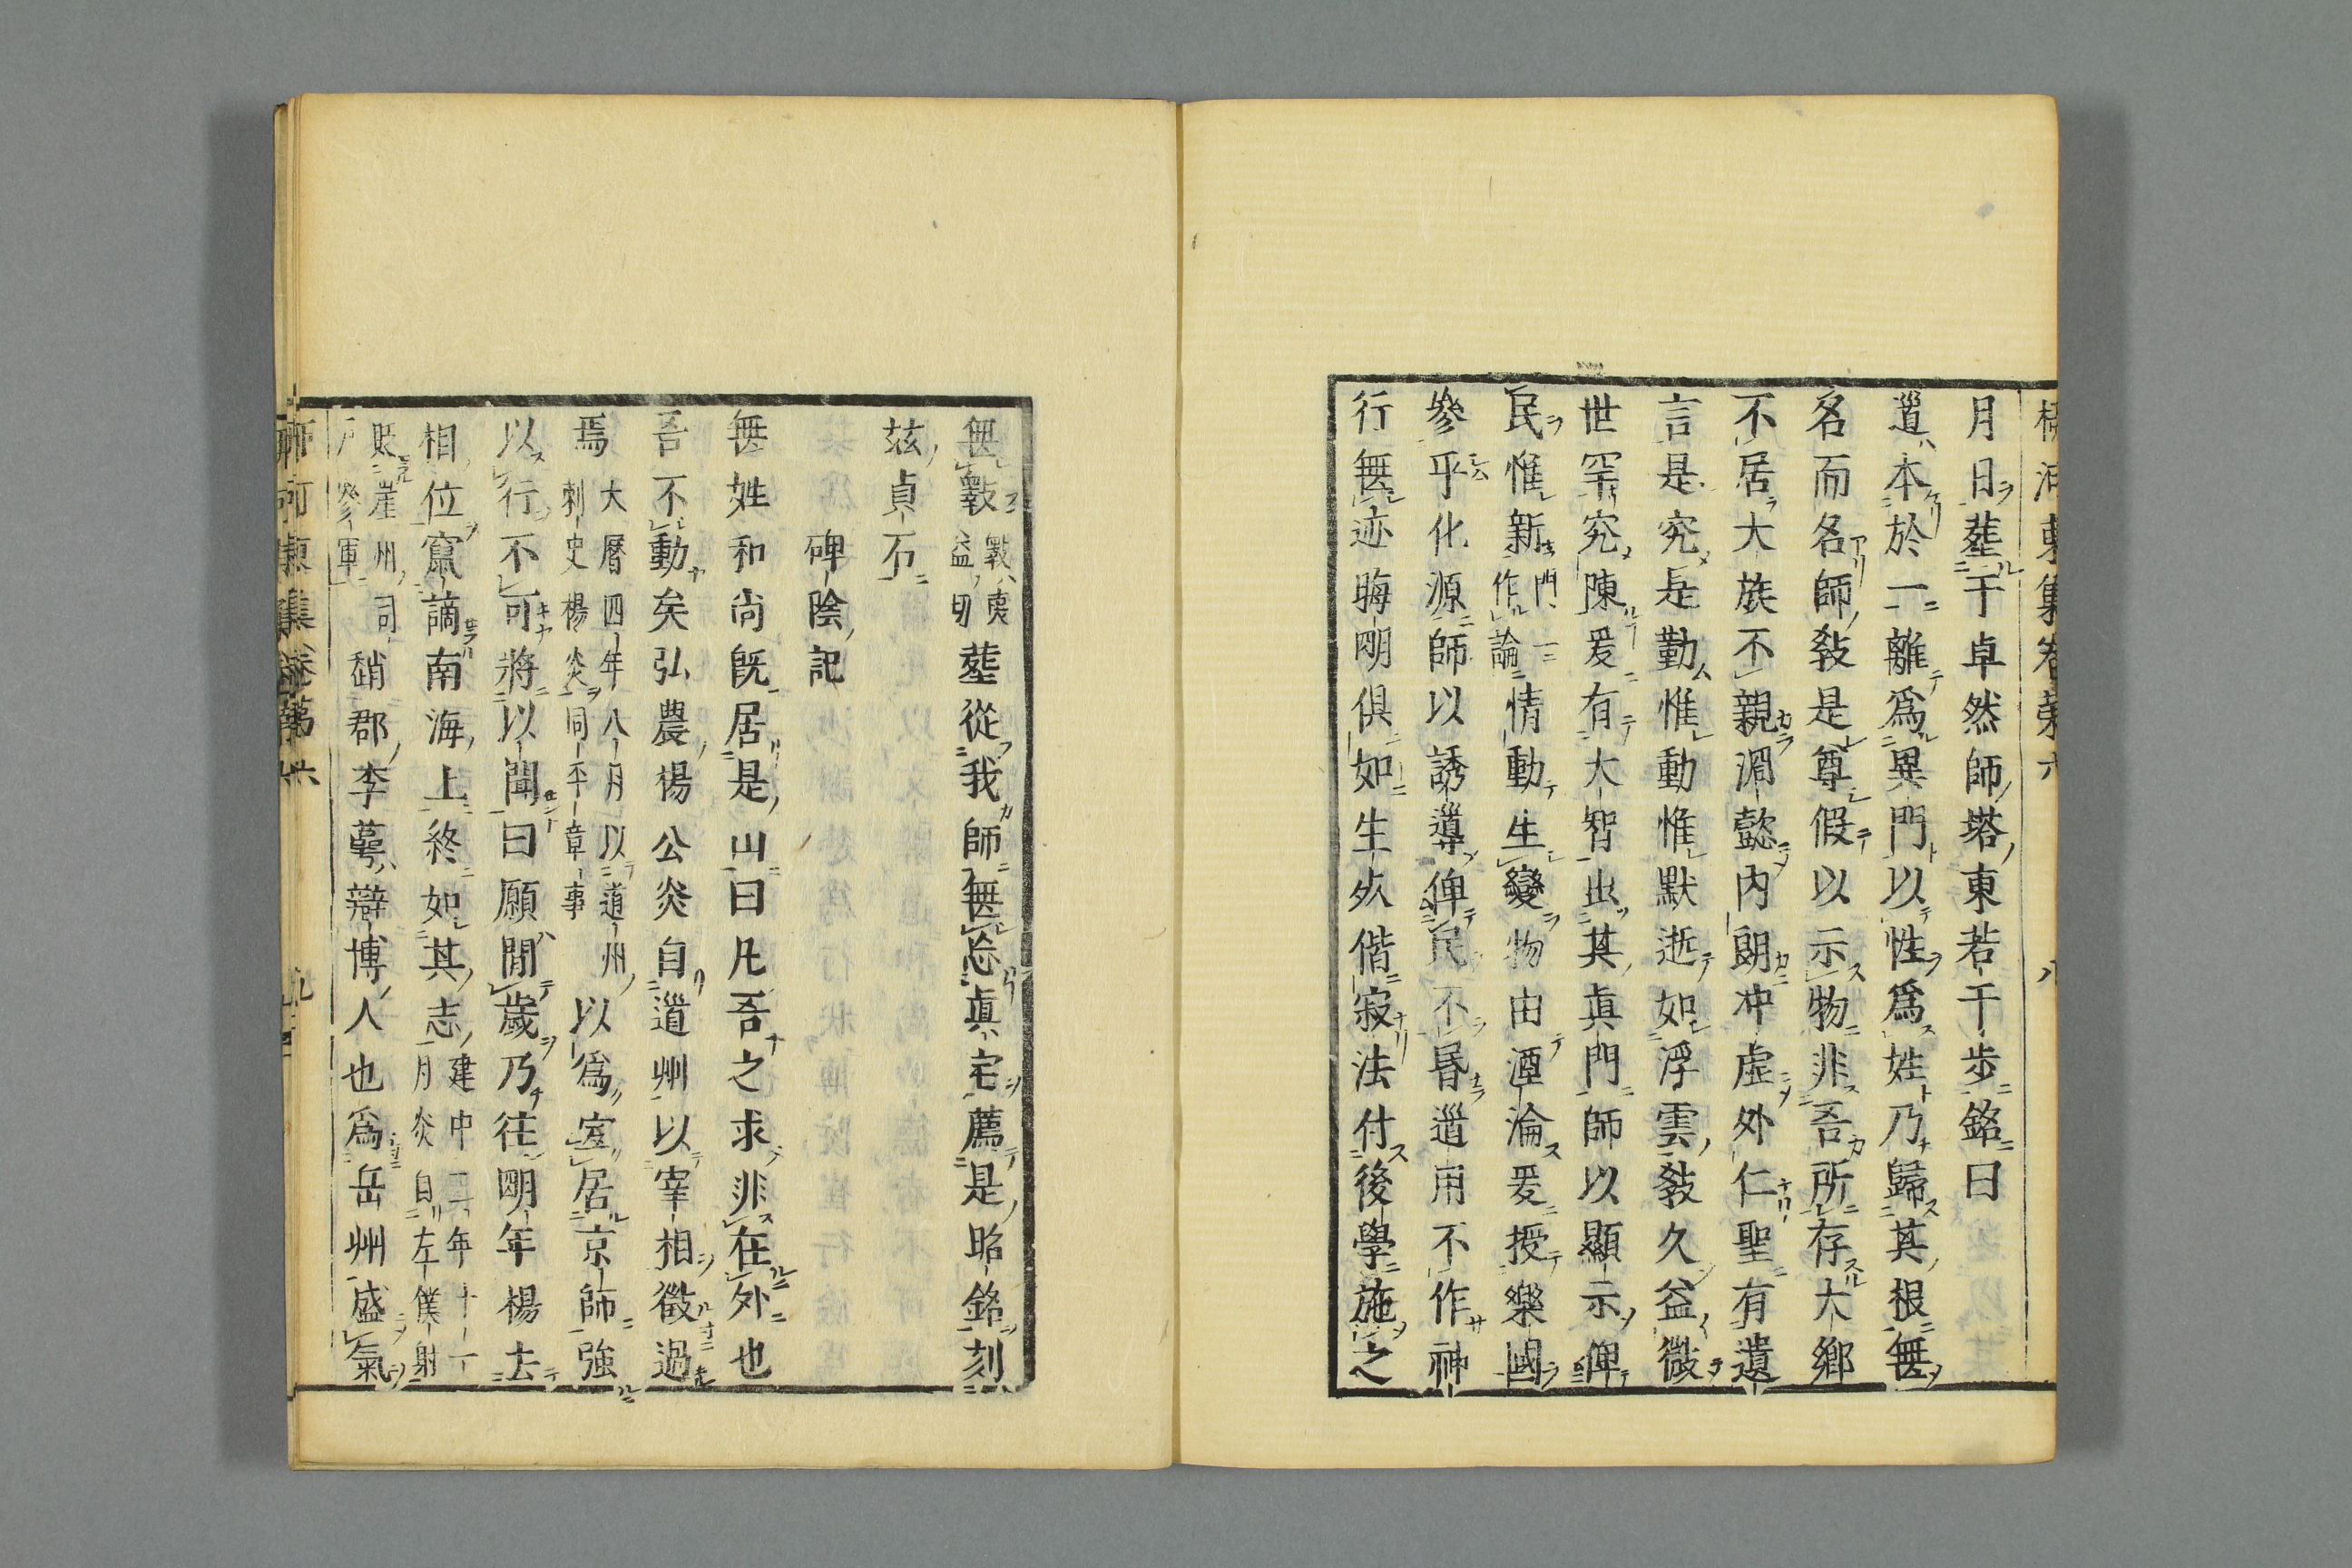 柳河東集卷第六 八
月日葬于卓然師塔東若干步銘曰
道本於一離爲異門以性爲姓乃歸其根無
名而名師敎是尊假以示物非吾所存大鄉
不居大族不親淵懿內朗冲虛外仁聖有遺
言是究是勤惟動惟默逝如浮雲敎久益微
世罕究陳爰有大智出其眞門師以顯示俾
民惟新門一作論情動生變物由湮淪爰授樂國
參乎化源師以誘導俾民不昏道用不作神
行無迹晦明俱如生死偕寂法付後學施之
無斁斁夷益切葬從我師無忘眞宅薦是昭銘刻
兹貞石
碑陰記
無姓和尚旣居是山曰凡吾之求非在外也
吾不動矣弘農楊公炎自道州以宰相徵過
焉大曆四年八月以道州刺史楊炎同平章事以爲宜居京師強
以行不可將以聞曰願閒歲乃往明年楊去
相位竄謫南海上終如其志建中二年十一月炎自左僕射
貶崖州司戶參軍趙郡李萼辯博人也爲岳州盛氣